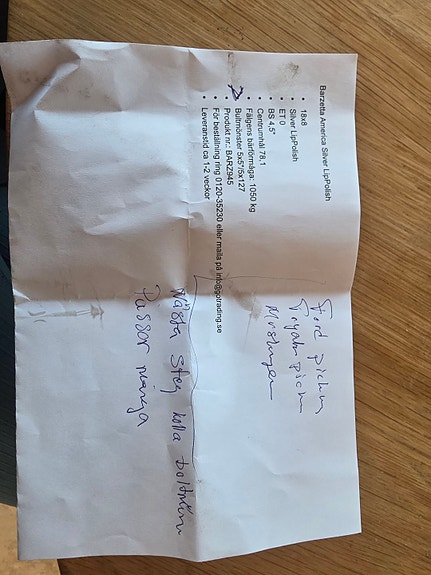 Barzetta America Silver LipPolish
• 18x8
• Silver LipPolish
• ET 0
• BS 4,5"
• Centrumhål 78,1
• Fälgens bärförmåga: 1050 kg
• Bultmönster 5x5"/5x127
• Produkt nr.: BARZ945
• För beställning ring 0120-35230 eller maila på info@gotrading.se
• Leveranstid ca 1-2 veckor
Ford
Nästa steg kolla
Passar många